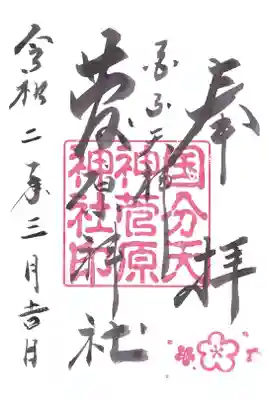 奉拝
国分天神
菅原神社
令和二年三月吉日
国分天
神菅原
神社印